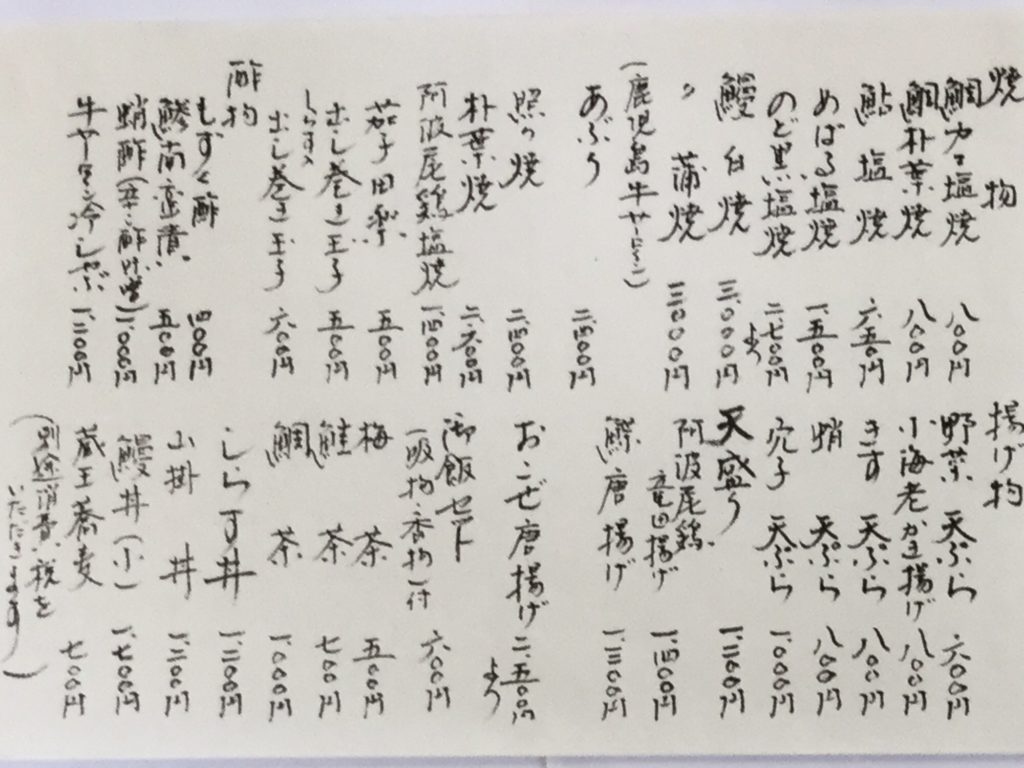 焼物
鯛カマ塩焼 八〇〇円
鯛朴葉焼 八〇〇円
鮎塩焼 六五〇円
めばる塩焼 一、五〇〇円
のど黒塩焼 二、七〇〇円より
鰻白焼 三、〇〇〇円
〃 蒲焼 三、〇〇〇円
(鹿児島牛サーロイン)
あぶり 二、四〇〇円
照り焼 二、四〇〇円
朴葉焼 二、六〇〇円
阿波尾鶏塩焼 一、四〇〇円
茄子田楽 五〇〇円
出し巻き玉子 五〇〇円
しらす入
出し巻き玉子 六〇〇円
酢物
もずく酢 四〇〇円
鯵南蛮漬 五〇〇円
蛸酢(辛子酢味噌) 一、〇〇〇円
牛サーロイン冷しゃぶ 一、二〇〇円
揚げ物
野菜天ぷら 六〇〇円
小海老かき揚げ 八〇〇円
きす天ぷら 八〇〇円
蛸天ぷら 八〇〇円
穴子天ぷら 一、〇〇〇円
天盛り 一、二〇〇円
阿波尾鶏
竜田揚げ 一、四〇〇円
鰈唐揚げ 一、三〇〇円
おこぜ唐揚げ 二、五〇〇円より
御飯セット
(吸物・香物)付 六〇〇円
梅茶 五〇〇円
鮭茶 七〇〇円
鯛茶 一、〇〇〇円
しらす丼 一、二〇〇円
山掛丼 一、二〇〇円
鰻丼(小) 一、七〇〇円
蔵王蕎麦 七〇〇円
(別途消費税を
いただきます)